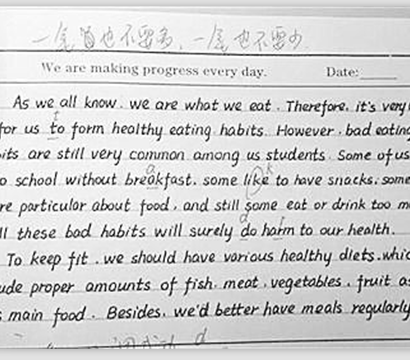 一点首也不要多,一点也不要少
We are making progress every day. Date:
As we all know, we are what we eat. Therefore, it's very
for us to form healthy eating habits. However, bad eating
its are still very common among us students. Some of us
o school without breakfast, some like to have snacks, some
re particular about food, and still some eat or drink too m
ll these bad habits will surely do harm to our health.
To keep fit, we should have various healthy diets, whic
ude proper amounts of fish, meat, vegetables, fruit as
main food. Besides, we'd better have meals regularly